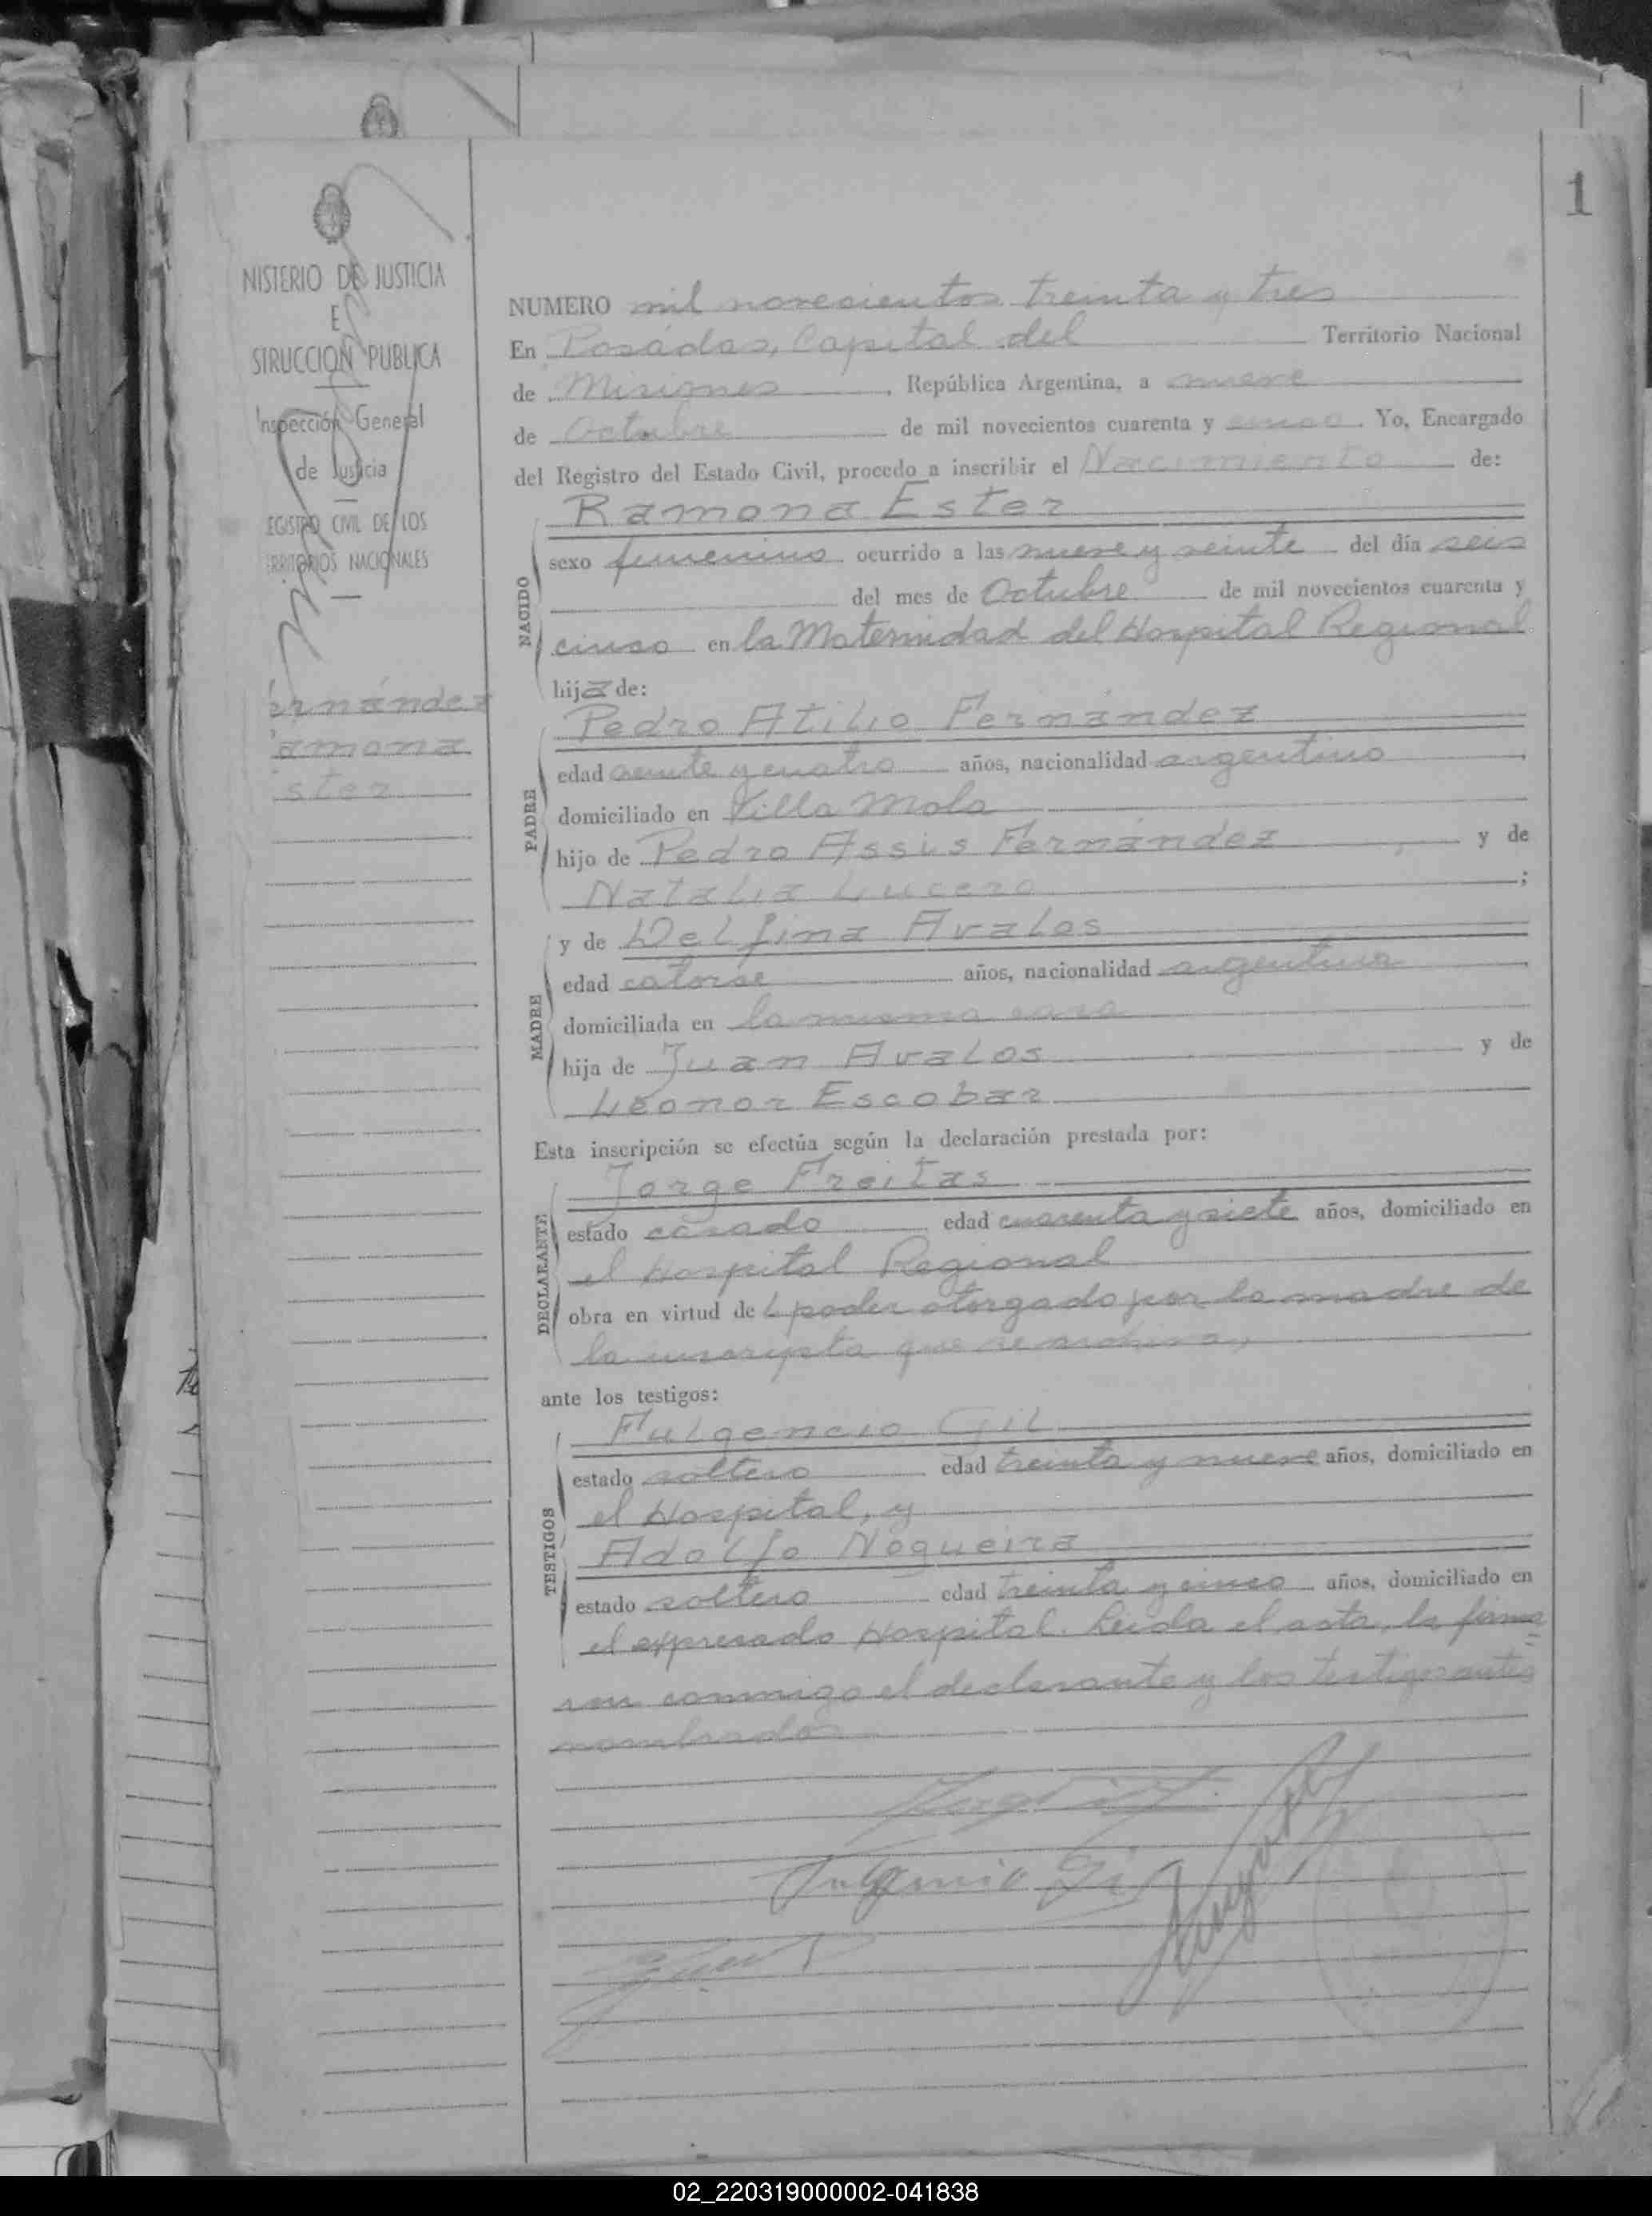 1
NISTERIO DE JUSTICIA
E
STRUCCION PUBLICA
Inspección General
de Justicia
EGISTRO CIVIL DE LOS
ERRITORIOS NACIONALES
ernández
amona
ster
NUMERO mil novecientos treinta y tres
En Posadas, Capital del Territorio Nacional
de Misiones, República Argentina, a nueve
de Octubre de mil novecientos cuarenta y cinco. Yo, Encargado
del Registro del Estado Civil, procedo a inscribir el Nacimiento de:
Ramona Ester
NACIDO
sexo femenino ocurrido a las nueve y veinte del día seis
del mes de Octubre de mil novecientos cuarenta y
cinco en la Maternidad del Hospital Regional
hija de:
Pedro Atilio Fernández
PADRE
edad veinte y cuatro años, nacionalidad argentino
domiciliado en Villa Mola
hijo de Pedro Assis Fernández, y de
Natalia Lucero;
y de Delfina Avalos
MADRE
edad catorse años, nacionalidad argentina
domiciliada en la misma casa
hija de Juan Avalos y de
Leonor Escobar
Esta inscripción se efectúa según la declaración prestada por:
Jorge Freitas
DECLARANTE
estado casado edad cuarenta y siete años, domiciliado en
el Hospital Regional
obra en virtud de poder otorgado por la madre de
la inscripta que se archiva,
ante los testigos:
Fulgencio Gil
TESTIGOS
estado soltero edad treinta y nueve años, domiciliado en
el Hospital, y
Adolfo Nogueira
estado soltero edad treinta y cinco años, domiciliado en
el expresado Hospital. Leida el acta, la firma=
ron conmigo el declarante y los testigos antes
nombrados
Fulgencio Gil
02_220319000002-041838